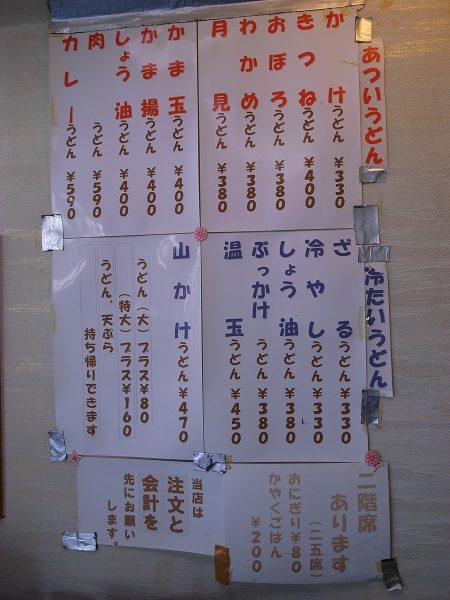 あついうどん
かけうどん ¥330
きつねうどん ¥400
おぼろうどん ¥380
わかめうどん ¥380
月見うどん ¥380
かま玉うどん ¥400
かま揚うどん ¥400
しょう油うどん ¥400
肉うどん ¥590
カレーうどん ¥590
冷たいうどん
ざるうどん ¥330
冷やしうどん ¥330
しょう油うどん ¥380
ぶっかけうどん ¥380
温玉うどん ¥450
山かけうどん ¥470
うどん(大)プラス¥80
(特大)プラス¥160
うどん 天ぷら
持ち帰りできます
二階席
あります
(二五席)
おにぎり¥80
かやくごはん
¥200
当店は
注文と
会計を
先にお願い
します。